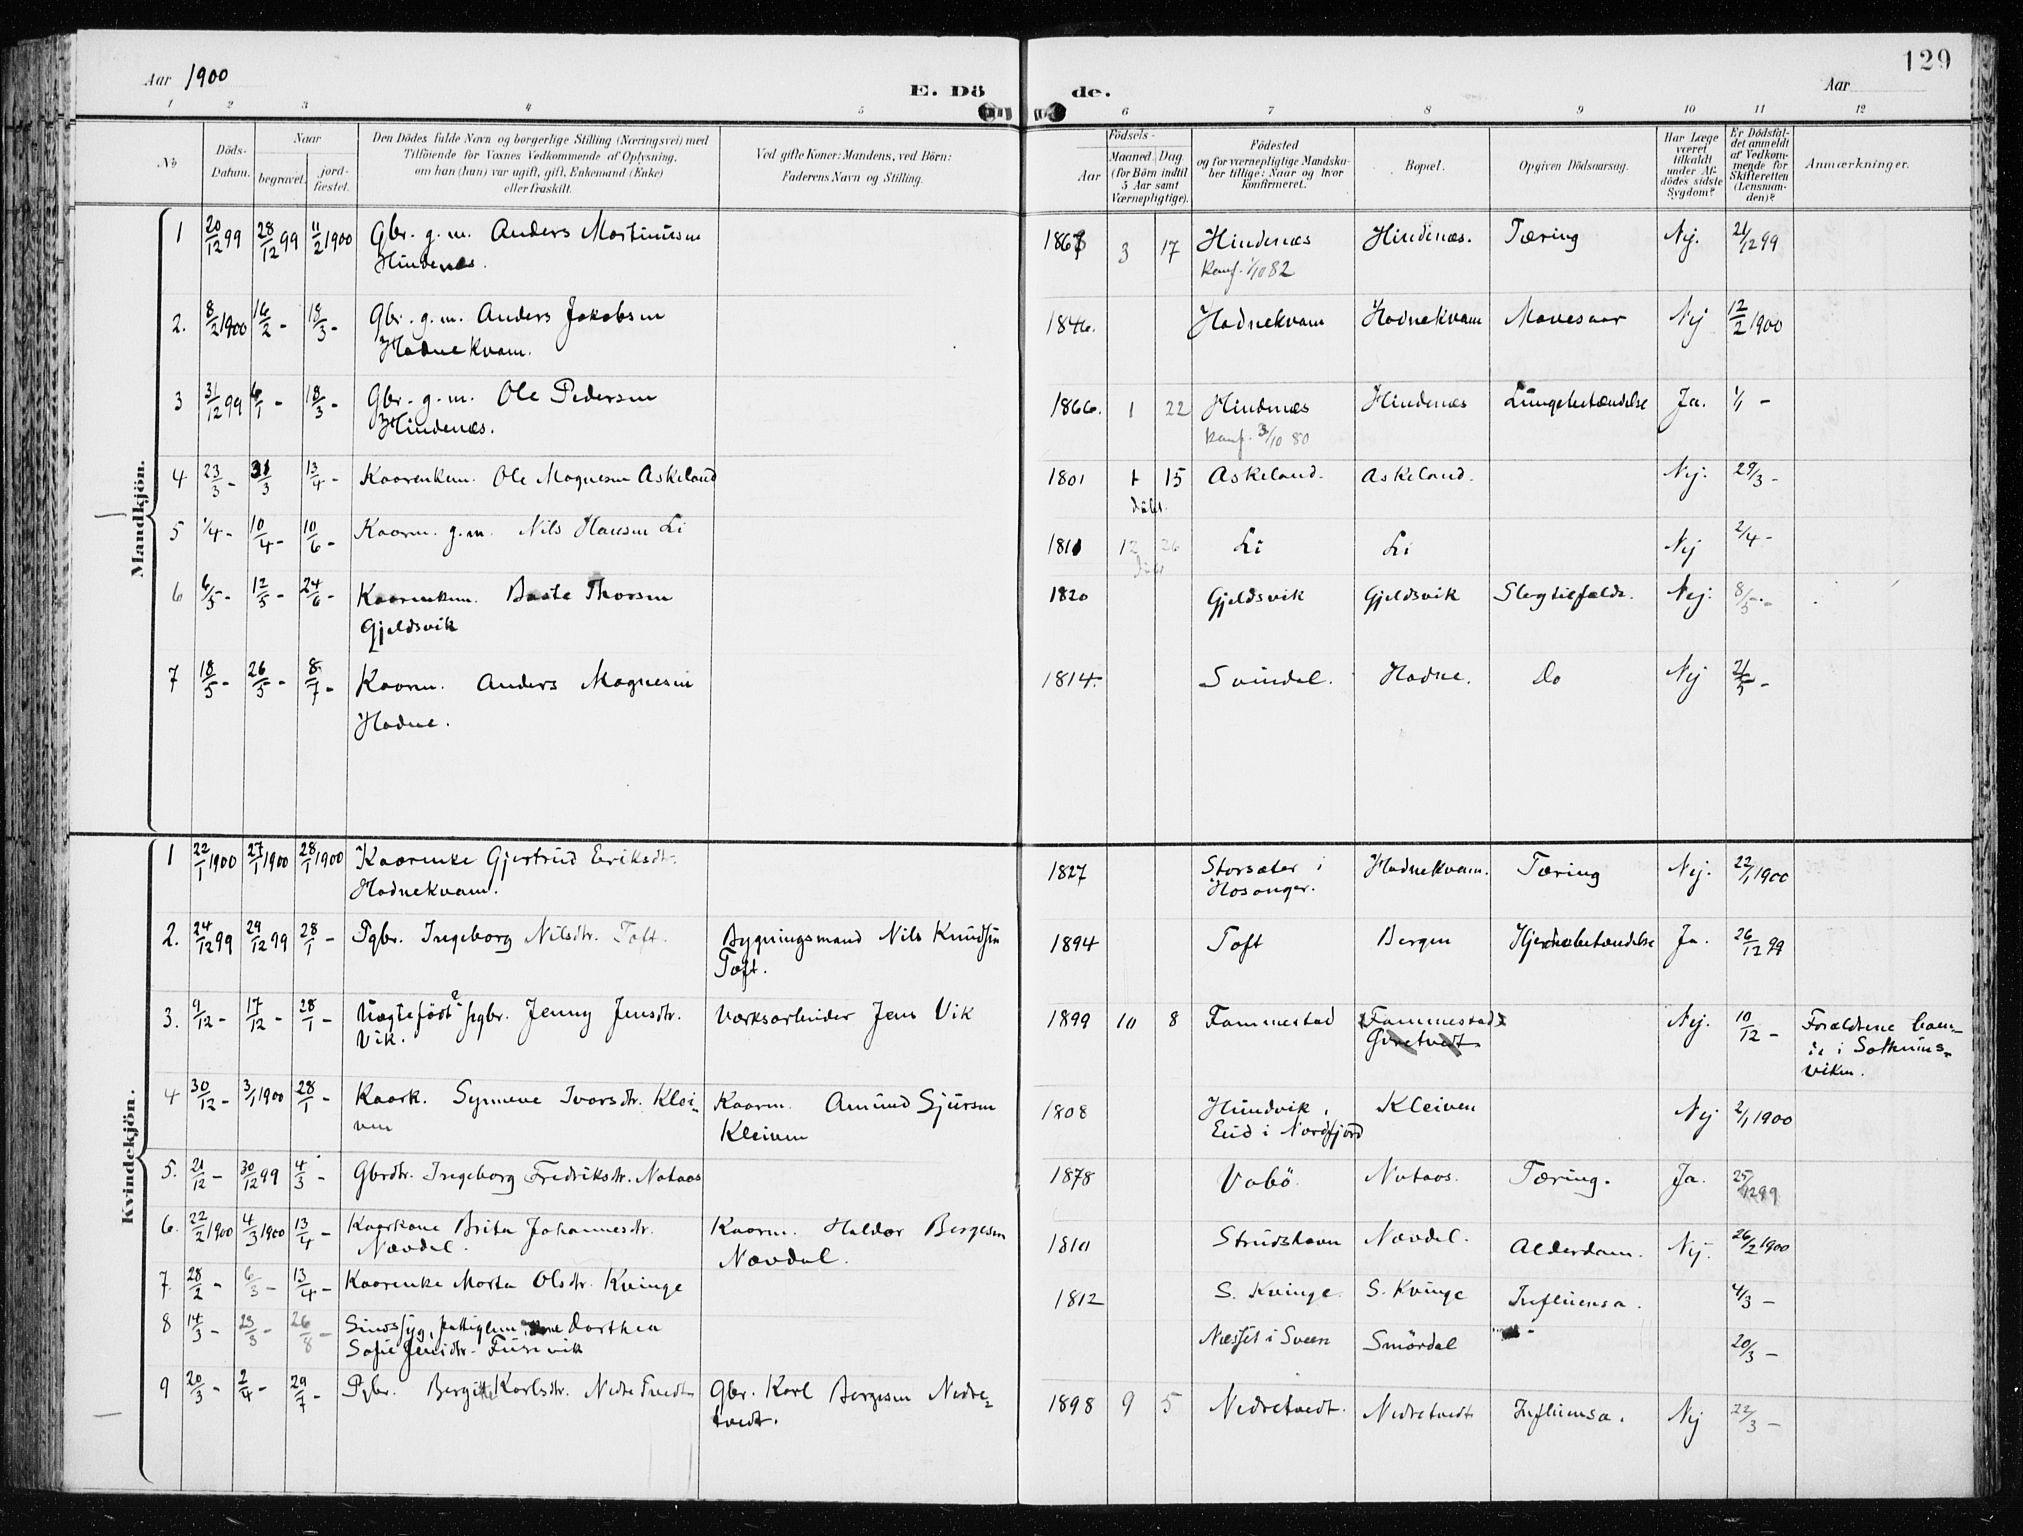 129
Aar 1900
E. Dö de.
Aar
1 2 3 4 5 6 7 8 9 10 11 12
No
Döds-
Datum.
Naar
begravet.
jord-
fæstet.
Den Dödes fulde Navn og borgerlige Stilling (Næringsvei) med
Tilföiende for Voxnes Vedkommende af Oplysning,
om han (hun) var ugift, gift, Enkemand (Enke)
eller fraskilt.
Ved gifte Koner: Mandens, ved Börn:
Faderens Navn og Stilling.
Födsels-
Aar
Maaned. Dag
(for Börn indtil
5 Aar samt
Værnepligtige).
Födested
og for værnepligtige Mandska-
ber tillige: Naar og hvor
Konfirmeret.
Bopæl.
Opgiven Dödsaarsag.
Har Læge
været
tilkaldt
under Af-
dödes sidste
Sygdom?
Er Dödsfal-
det anmeldt
af Vedkom-
mende for
Skifteretten
(Lensman-
den)?
Anmærkninger.
Mandkjön.
1 20/12 99 28/12 99 11/2 1900 Gbr. g.m. Anders Martinussen 3 17 Hindenæs Hindenæs. Tæring Nej. 21/12 99
Hindenæs. konf. 1/10 82
2. 8/2 1900 16/2 - 18/3 - Gbr. g.m. Anders Jakobsen 1846. Hodnekvam Hodnekvam Mavesaar Nej 12/2 1900
Hodnekvam.
3 31/12 99 6/1 - 18/3 - Gbr. g.m. Ole Pedersen 1866. 1 22 Hindenæs Hindenæs Lungebetændelse Ja. 1/1 -
Hindenæs. konf. 3/10 80
4 23/3 - 31/3 13/4 - Kaarenkem. Ole Magnesen Askeland 1801 1 15 Askeland. Askeland. Nej. 29/3 -
döbt.
5 1/4 - 10/4 - 10/6 - Kaarm. g.m. Nils Hansen Li 1810 12 26 Li Li Nej 2/4 -
döbt
6 6/5 - 12/5 - 24/6 - Kaarenkem. Baste Thorsen 1820 Gjeldsvik Gjeldsvik Slagtilfælde. Nej. 8/5 -
Gjeldsvik
7 18/5 - 26/5 - 8/7 - Kaarm. Anders Magnesen 1814. Svindal. Hodne. Do Nej 21/5 -
Hodne.
Kvindekjön.
1 22/1 1900 27/1 1900 28/1 1900 Kaarenke Gjertrud Eriksdtr. 1827 Storsæter i Hodnekvam. Tæring Nej. 22/1 1900
Hodnekvam. Hosanger.
2. 24/12 99 29/12 99 28/1 - Pgbr. Ingeborg Nilsdtr. Toft. Bygningsmand Nils Knudsen 1894 Toft Bergen Hjernebetændelse Ja. 26/12 99
Toft.
3. 9/12 - 17/12 - 28/1 - Uægtefödt? pgbr. Jenny Jensdtr. Værksarbeider Jens Vik 1899 10 8 Fammestad Fammestad Nej. 10/12 - Forældrene boen-
Vik. Övretvedt de i Salhus-
viken.
4 30/12 - 3/1 1900 28/1 - Kaark. Synneve Ivarsdtr. Klei- Kaarm. Amund Sjursen 1808 Hundvik, Kleiven Nej 2/1 1900
ven Kleiven Eid i Nordfjord
5. 21/12 - 30/12 99 4/3 - Gbrdtr. Ingeborg Fredriksdtr. Nataas 1878 Vabö. Nataas. Tæring. Ja. 25/12 99
6. 22/2 1900 4/3 1900 13/4 - Kaarkone Brita Johannesdtr. Kaarm. Haldor Børgesen 1810 Strudshavn Nævdal. Alderdom. Nej. 26/2 1900
Nævdal. Nævdal.
7. 28/2 - 6/3 - 13/4 - Kaarenke Marta Olsdtr. Kvinge 1812 S. Kvinge. S. Kvinge Influensa. 4/3 -
8 14/3 - 23/3 - 26/8 - Sindssyg, fattiglem Dorthea Næsset i Sveen Smördal - 20/3 -
Sofie Jensdtr. Furevik
9 20/3 - 2/4 - 29/7 - Pgbr. Bergitte Karlsdtr. Nedretvedt Gbr. Karl Børgesen Nedre- 1898 9 5 Nedretvedt. Nedretvedt Influensa. Nej 22/3 -
tvedt.